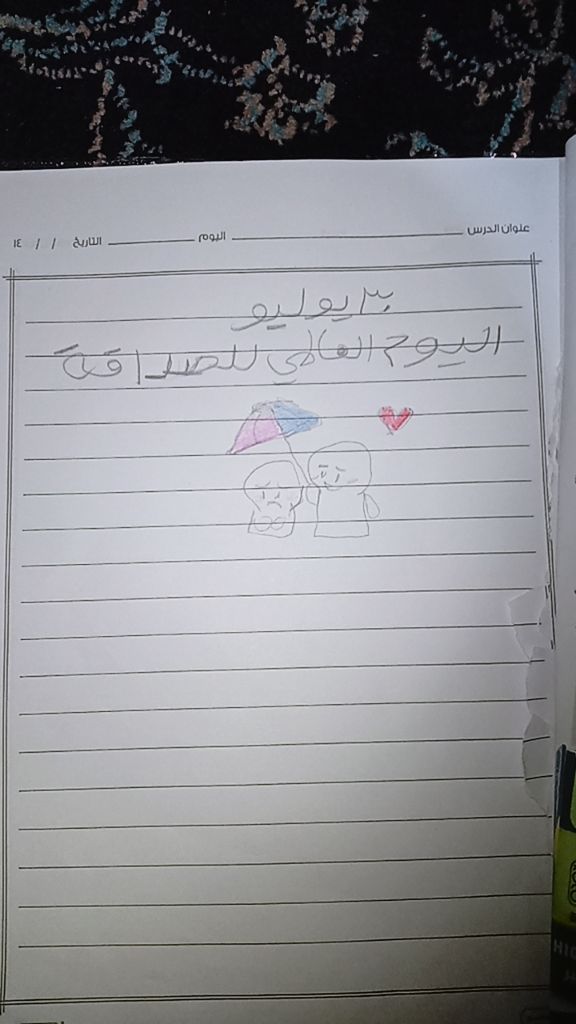 عنوان الدرس اليوم التاريخ / / ١٤
٣٠ يوليو
اليوم العالمي للصداقة